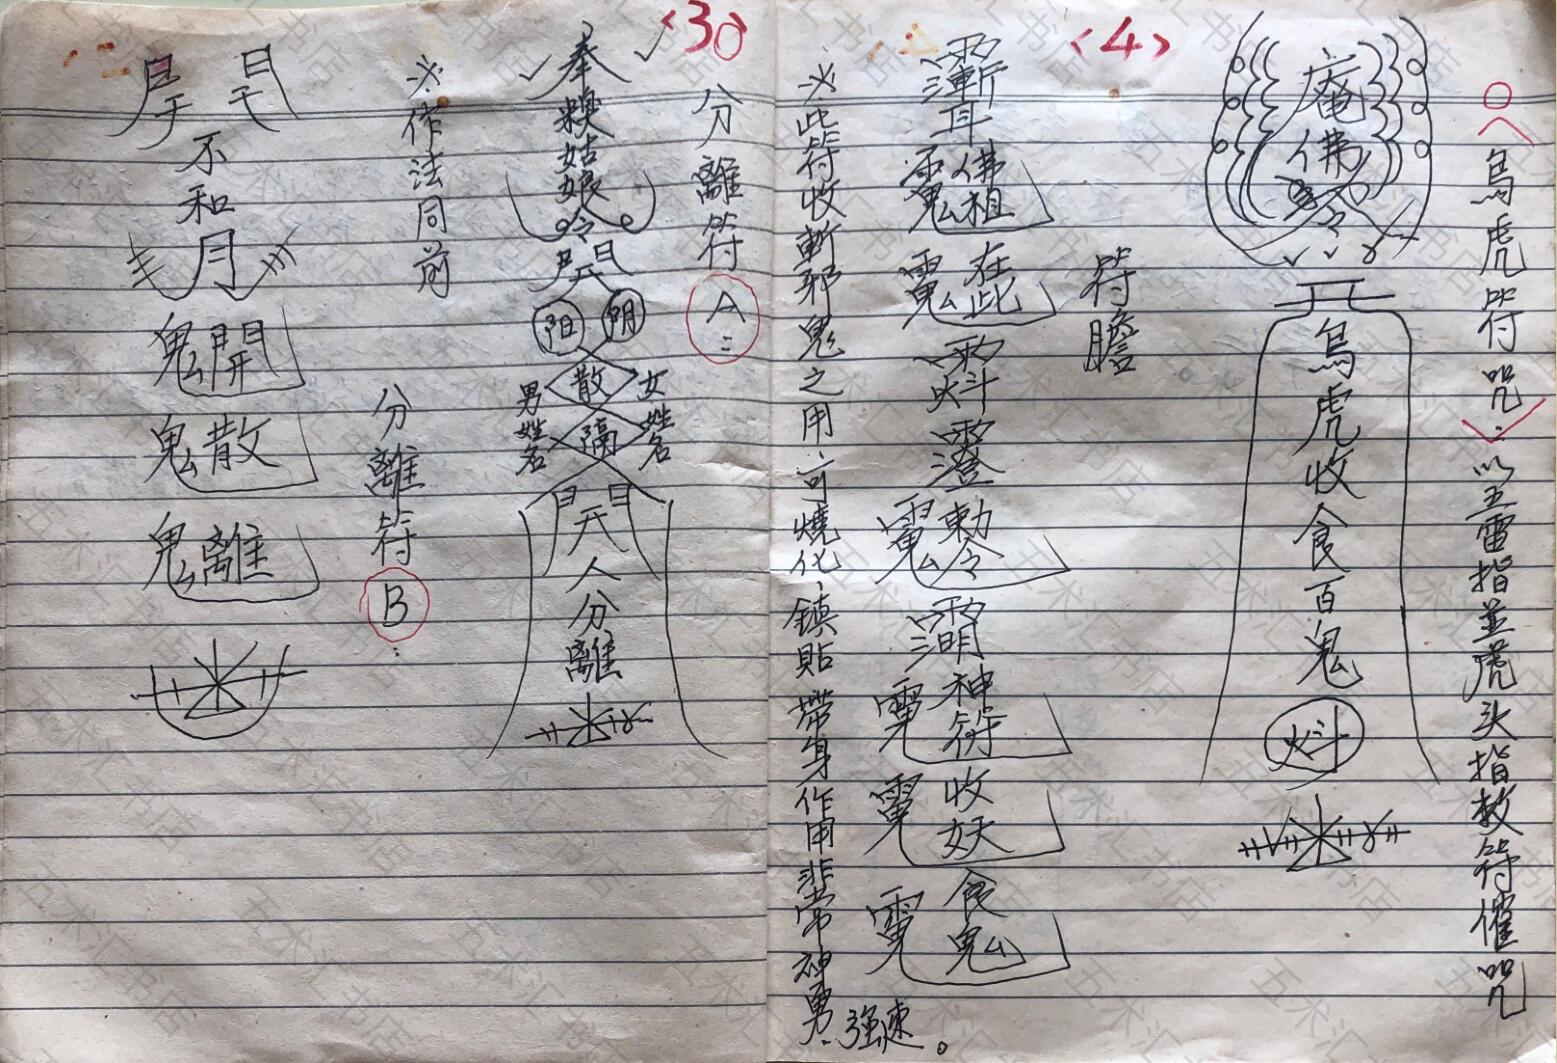 <4>
○へ烏虎符咒：以五雷指並虎头指敕符催咒
庵佛
令
烏虎收食百鬼
符膽
佛祖
在此
敕令
神符
收妖
食鬼
※此符收斬邪鬼之用、可燒化、鎮貼、帶身作用非常神勇、強速。
<30
分離符
A
奉糗姑娘令
阳 阴
散
男姓名
女姓名
隔
人分離
※作法同前
分離符
B
不和
月
鬼開
鬼散
鬼離
五术汇书店